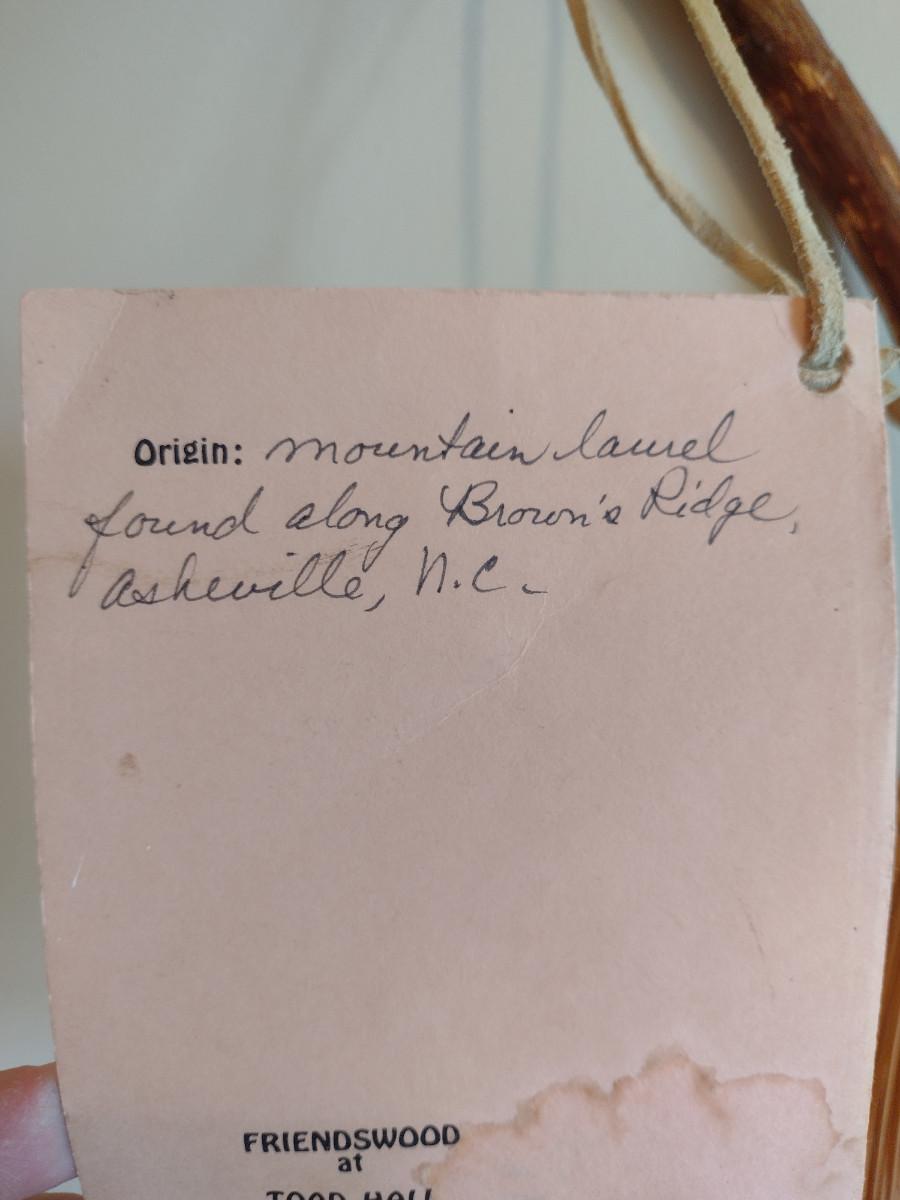 Origin: mountain laurel
found along Brown's Ridge,
Asheville, N.C.
FRIENDSWOOD
at
TOAD HALL